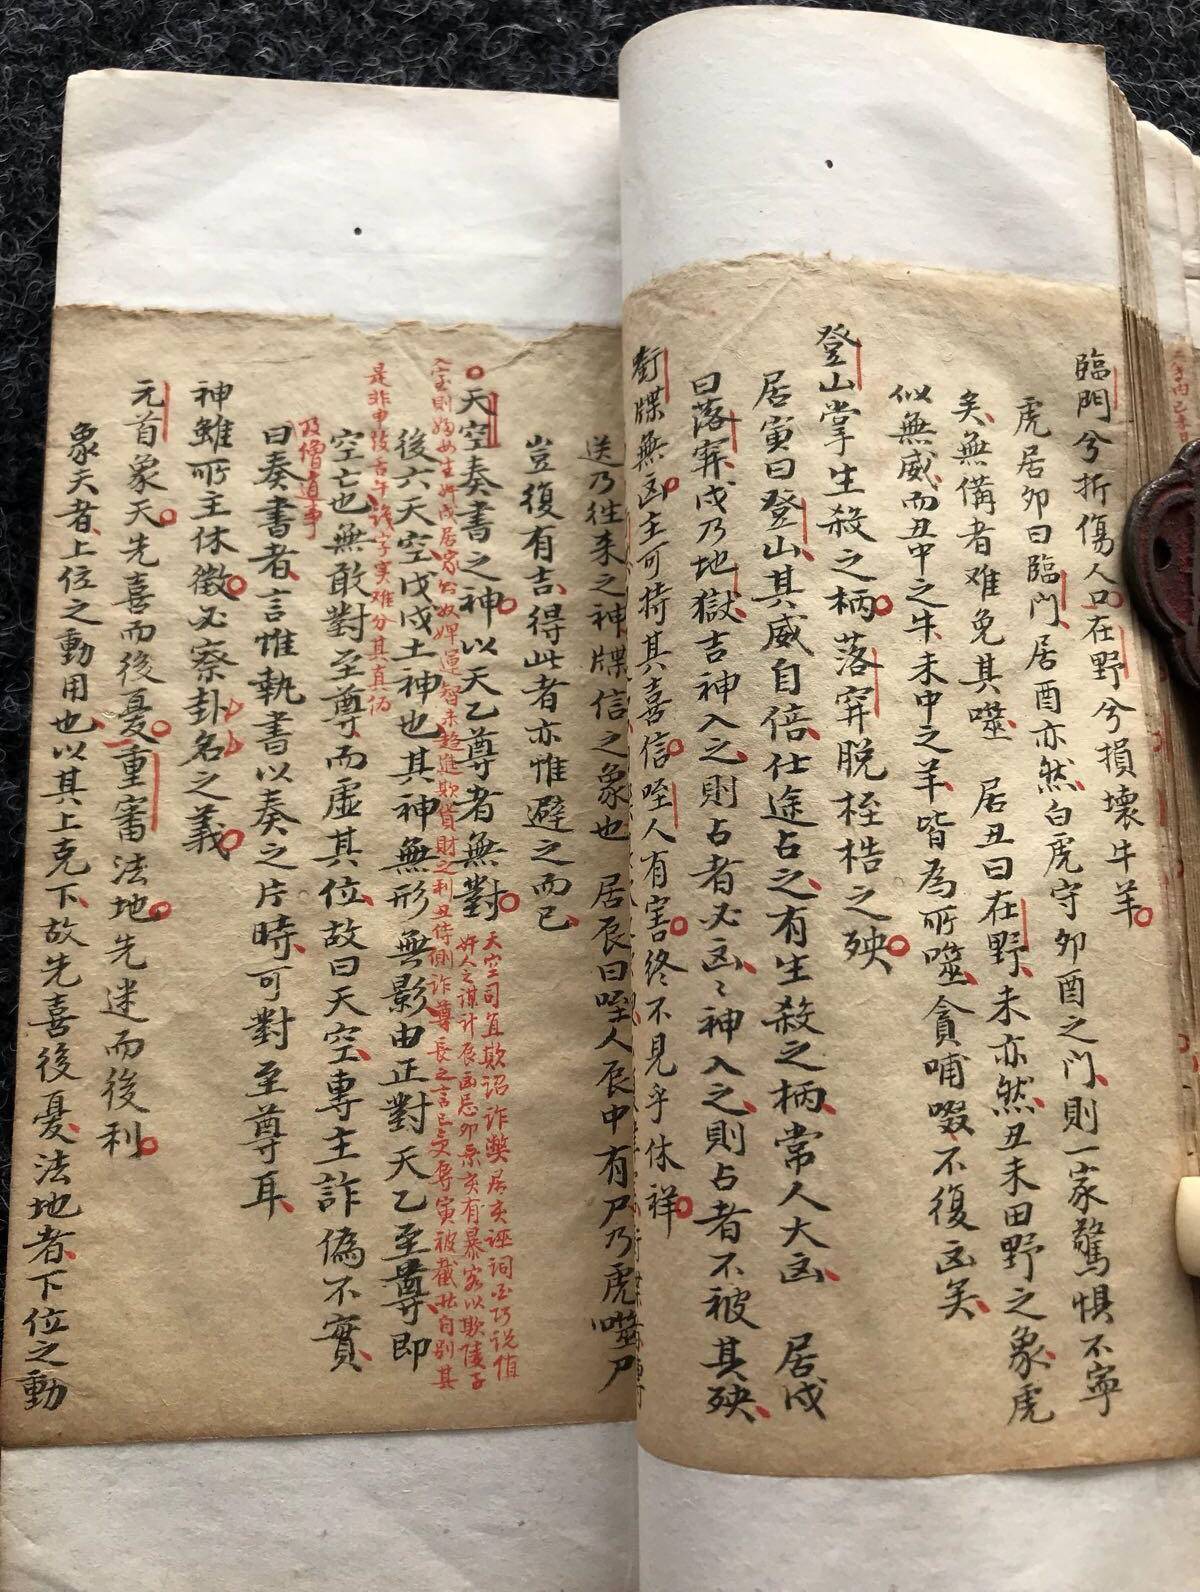 臨門兮折傷人口在野兮損壞牛羊
虎居卯曰臨門居酉亦然白虎守卯酉之門則一家驚惧不寧
矣無俻者难免其噬　居丑曰在野未亦然丑未田野之象虎
似無威而丑中之牛未中之羊皆為所噬貪哺啜不復凶矣
登山掌生殺之柄落穽脱桎梏之殃
居寅曰登山其威自倍仕途占之有生殺之柄常人大凶　居戌
曰落穽戌乃地獄吉神入之則占者必凶〻神入之則占者不被其殃
銜牒無凶主可持其喜信咥人有害终不見乎休祥
送乃往来之神牒信之象也　居辰曰咥人辰中有尸乃虎噬尸
豈復有吉得此者亦惟避之而已
天空奏書之神以天乙尊者無對
天空司宜欺诏诈獘居亥誣詞
奸人之谋計辰凶忌卯
後六天空戊戌土神也其神無形無影由正對天乙至尊即
是非申
空亡也無敢對至尊而虛其位故曰天空專主詐偽不實
及僧道事
曰奏書者言惟執書以奏之片時可對至尊耳
神雖所主休徵必察卦名之義
元首象天先喜而後憂重審法地先迷而後利
象天者上位之動用也以其上克下故先喜後憂法地者下位之動